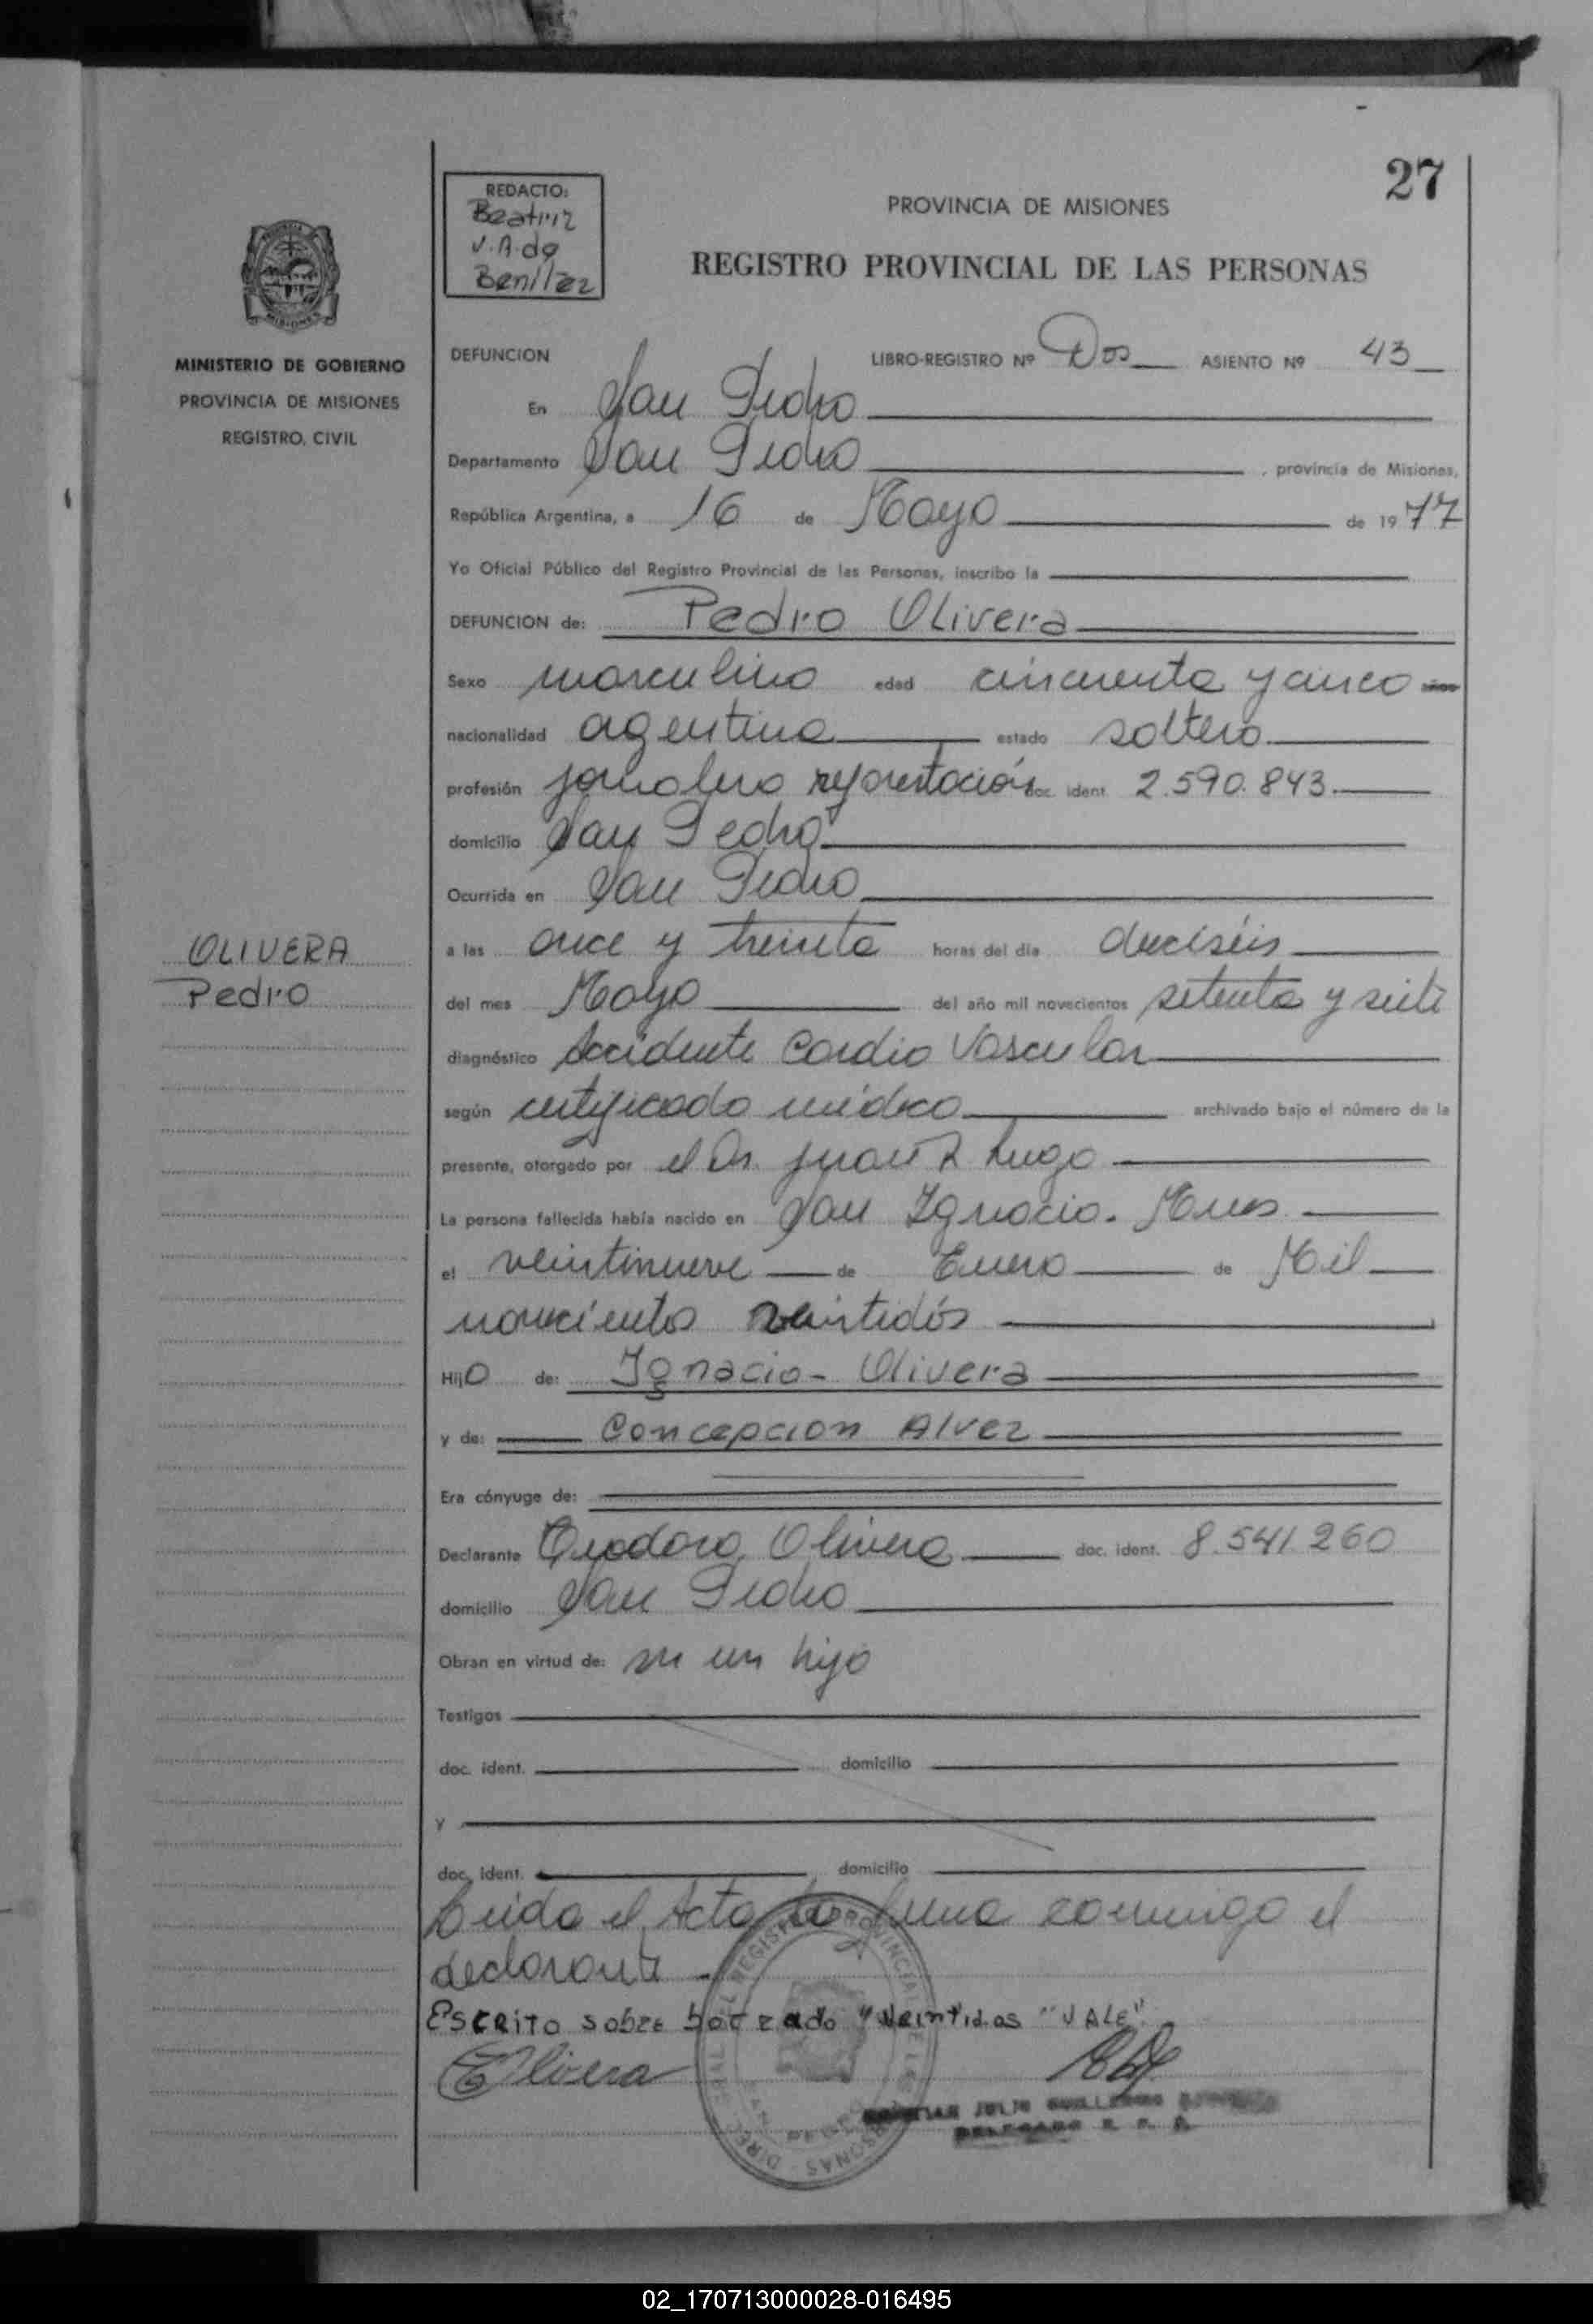 27
REDACTO:
Beatriz
V.A.de
Benitez
PROVINCIA DE MISIONES
REGISTRO PROVINCIAL DE LAS PERSONAS
MINISTERIO DE GOBIERNO
PROVINCIA DE MISIONES
REGISTRO CIVIL
DEFUNCION LIBRO-REGISTRO Nº Dos ASIENTO Nº 43
En San Pedro
Departamento San Pedro , provincia de Misiones,
República Argentina, a 16 de Mayo de 1977
Yo Oficial Público del Registro Provincial de las Personas, inscribo la
DEFUNCION de: Pedro Olivera
Sexo masculino edad cincuenta y cinco años
nacionalidad agentina estado soltero
profesión jornalero reforestación doc. ident. 2.590.843
domicilio San Pedro
Ocurrida en San Pedro
OLIVERA
Pedro
a las once y treinta horas del día dieciséis
del mes Mayo del año mil novecientos setenta y siete
diagnóstico Accidente Cardio Vascular
según certificado médico archivado bajo el número de la
presente, otorgado por el Dr. Juan R Lugo
La persona fallecida había nacido en San Ignacio. Mnes
el veintinueve de Enero de Mil
novecientos veintidós
Hijo de: Ignacio - Olivera
y de: Concepcion Alvez
Era cónyuge de:
Declarante Teodoro Olivera doc. ident. 8.541.260
domicilio San Pedro
Obran en virtud de: ser un hijo
Testigos
doc. ident. domicilio
y
doc. ident. domicilio
Leida el Acta la firma conmigo el
declarante
ESCRITO sobre borrado "veintidos "VALE".
Olivera
JULIO
DELEGADO R. P. P.
SAN PEDRO
02_170713000028-016495